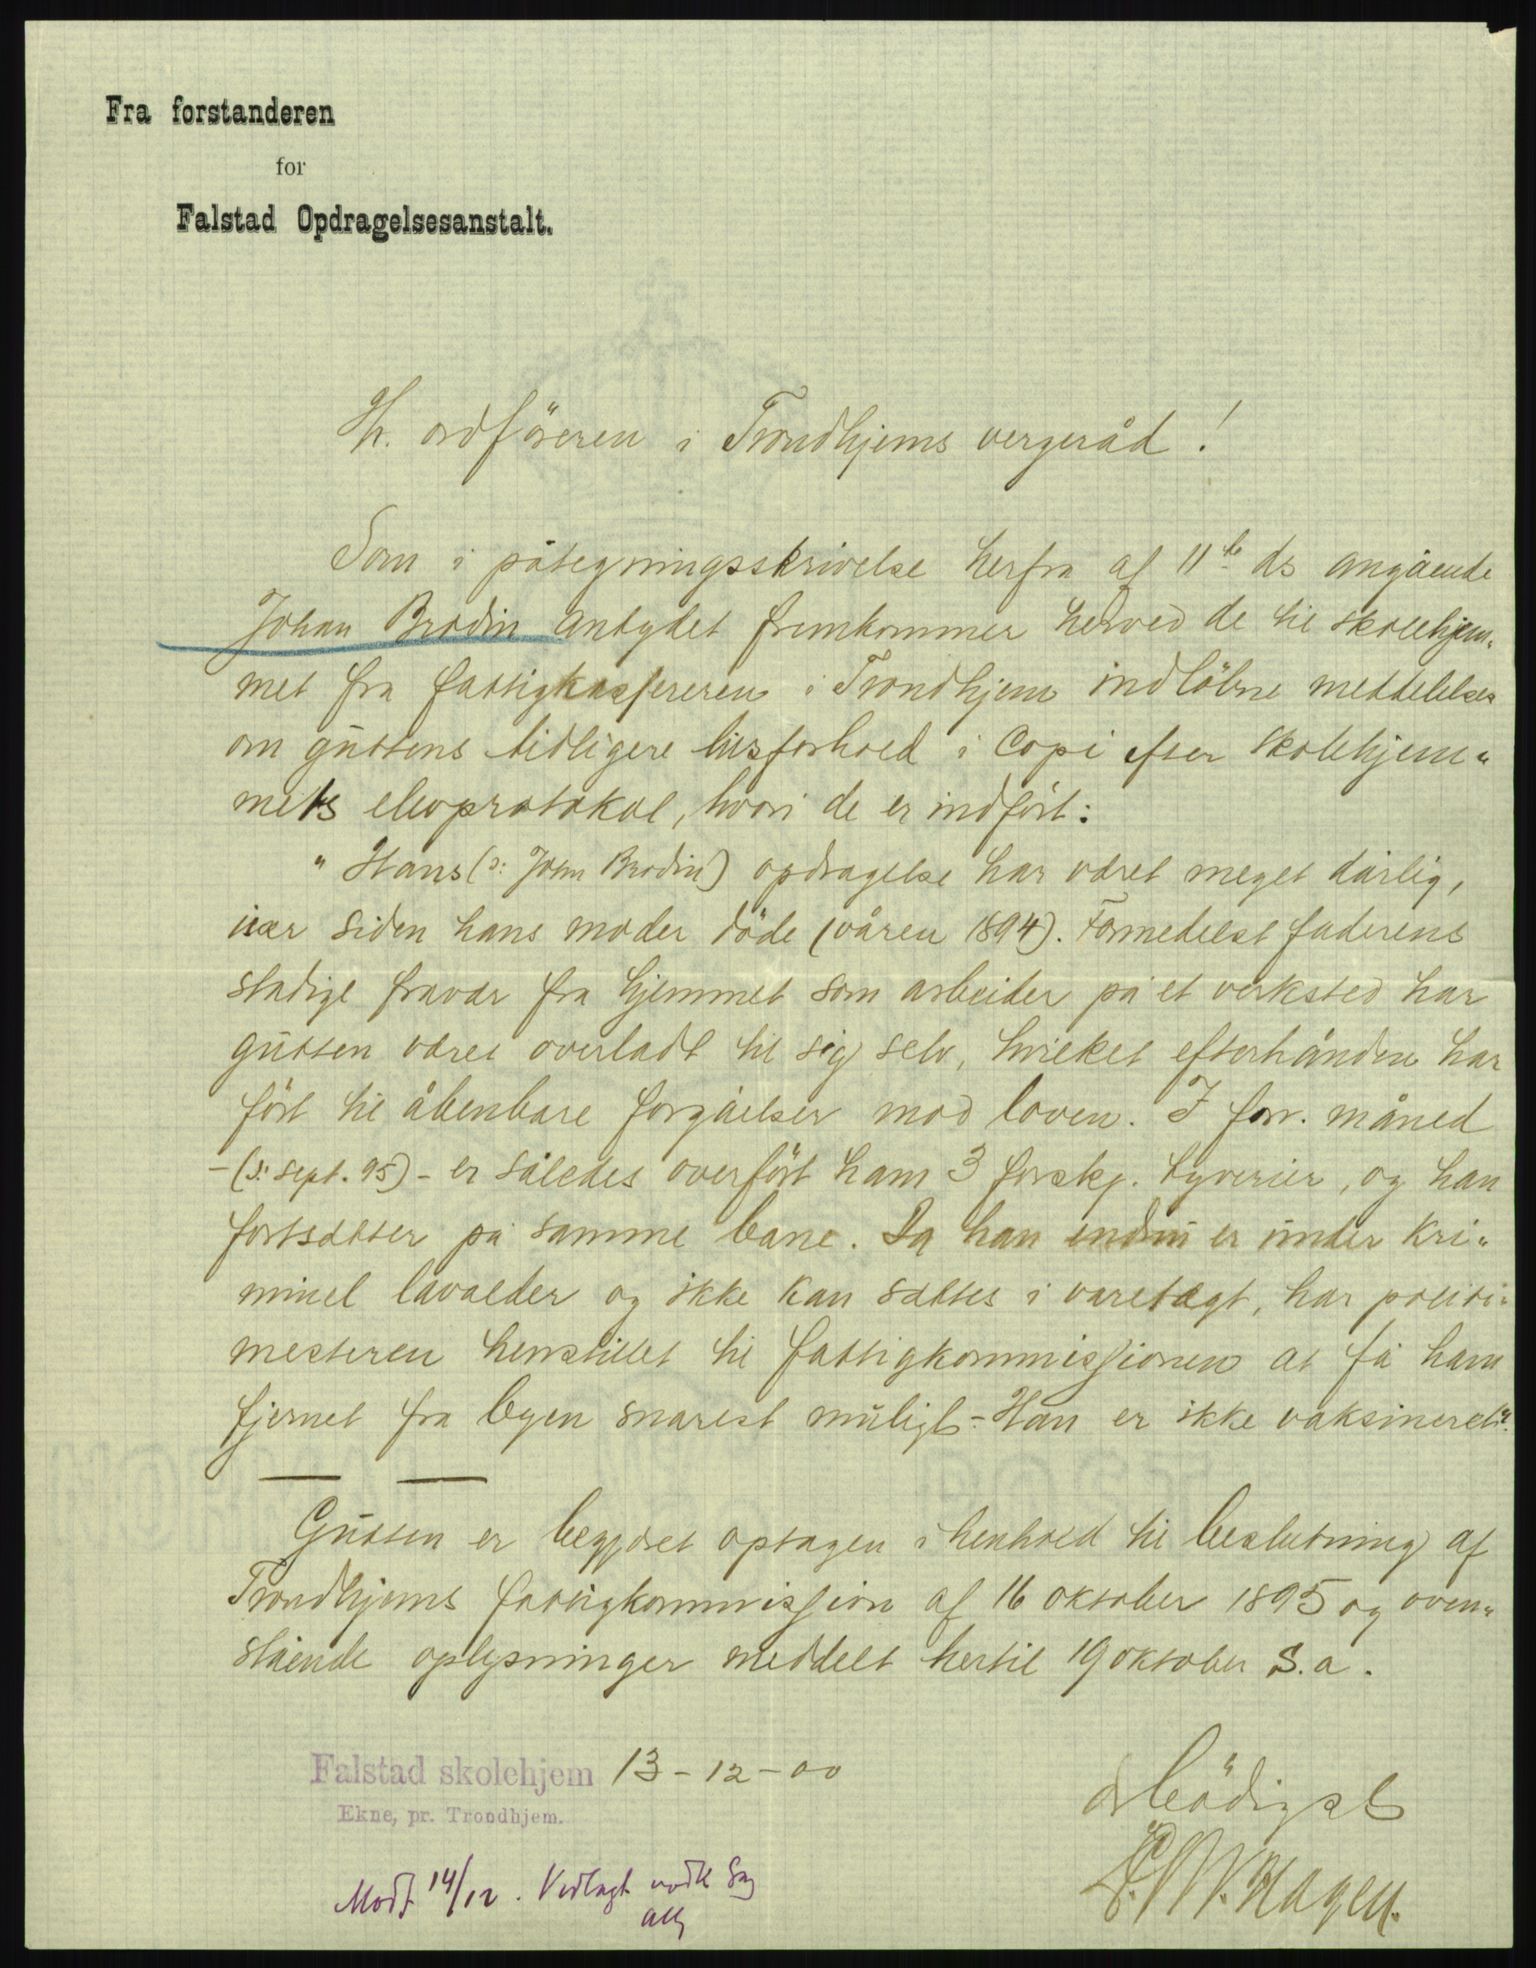 Fra forstanderen
for
Falstad Opdragelsesanstalt.
Hr. ordföreren i Trondhjems vergeråd!
Som i påtegningsskrivelse herfra af 11te ds angående
Johan Brodin antydet fremkommer herved de til skolehjem„
met fra fattigkassereren i Trondhjem indlöbne meddelelser
om guttens tidligere livsforhold i Copi efter skolehjem„
mets elevprotokol, hvori de er indfört:
"Hans (ɔ: John Brodin) opdragelse har været meget dårlig,
især siden hans moder döde (våren 1894). Formedelst faderens
stadige fravær fra hjemmet som arbeider på et verksted har
gutten været overladt til sig selv, hvilket efterhånden har
fört til åbenbare forgåelser mod loven. I forr. måned
–(ɔ: sept. 95)– er således overfört ham 3 forskj. tyverier, og han
fortsætter på samme bane. Da han endnu er under kri„
minel lavalder og ikke kan sættes i varetægt, har politi„
mesteren henstillet til fattigkommissionen at få ham
fjernet fra byen snarest muligt.– Han er ikke vaksineret".
Gutten er begjæret optagen i henhold til beslutning af
Trondhjems fattigkommission af 16 oktober 1895 og oven„
stående oplysninger meddelt hertil 19 oktober s.a.
Falstad skolehjem 13–12–00
Ekne, pr. Trondhjem.
ærbödigst
W. Hagen.
Modt 14/12. Vedlagt Sag